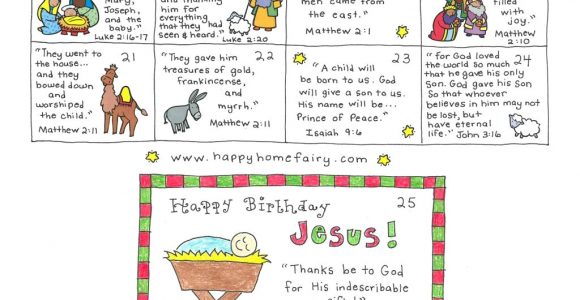 Mary,
Joseph,
and the
baby."
Luke 2:16-17
him for
everything
that they had
seen & heard."
Luke 2:20
men came from
the east."
Matthew 2:1
filled
with
joy."
Matthew
2:10
"They went to
the house...
and they
bowed down
and
worshiped
the child."
Matthew 2:11
21
"They gave him
treasures of gold,
frankincense,
and
myrrh."
Matthew 2:11
22
23
"A child will
be born to us. God
will give a son to us.
His name will be...
Prince of Peace."
Isaiah 9:6
"for God loved
the world so much
that he gave his only
Son. God gave his Son
So that whoever
believes in him may not
be lost, but
have eternal
life." John 3:16
24
www.happyhomefairy.com
Happy Birthday
25
Jesus!
"Thanks be to God
for His indescribable